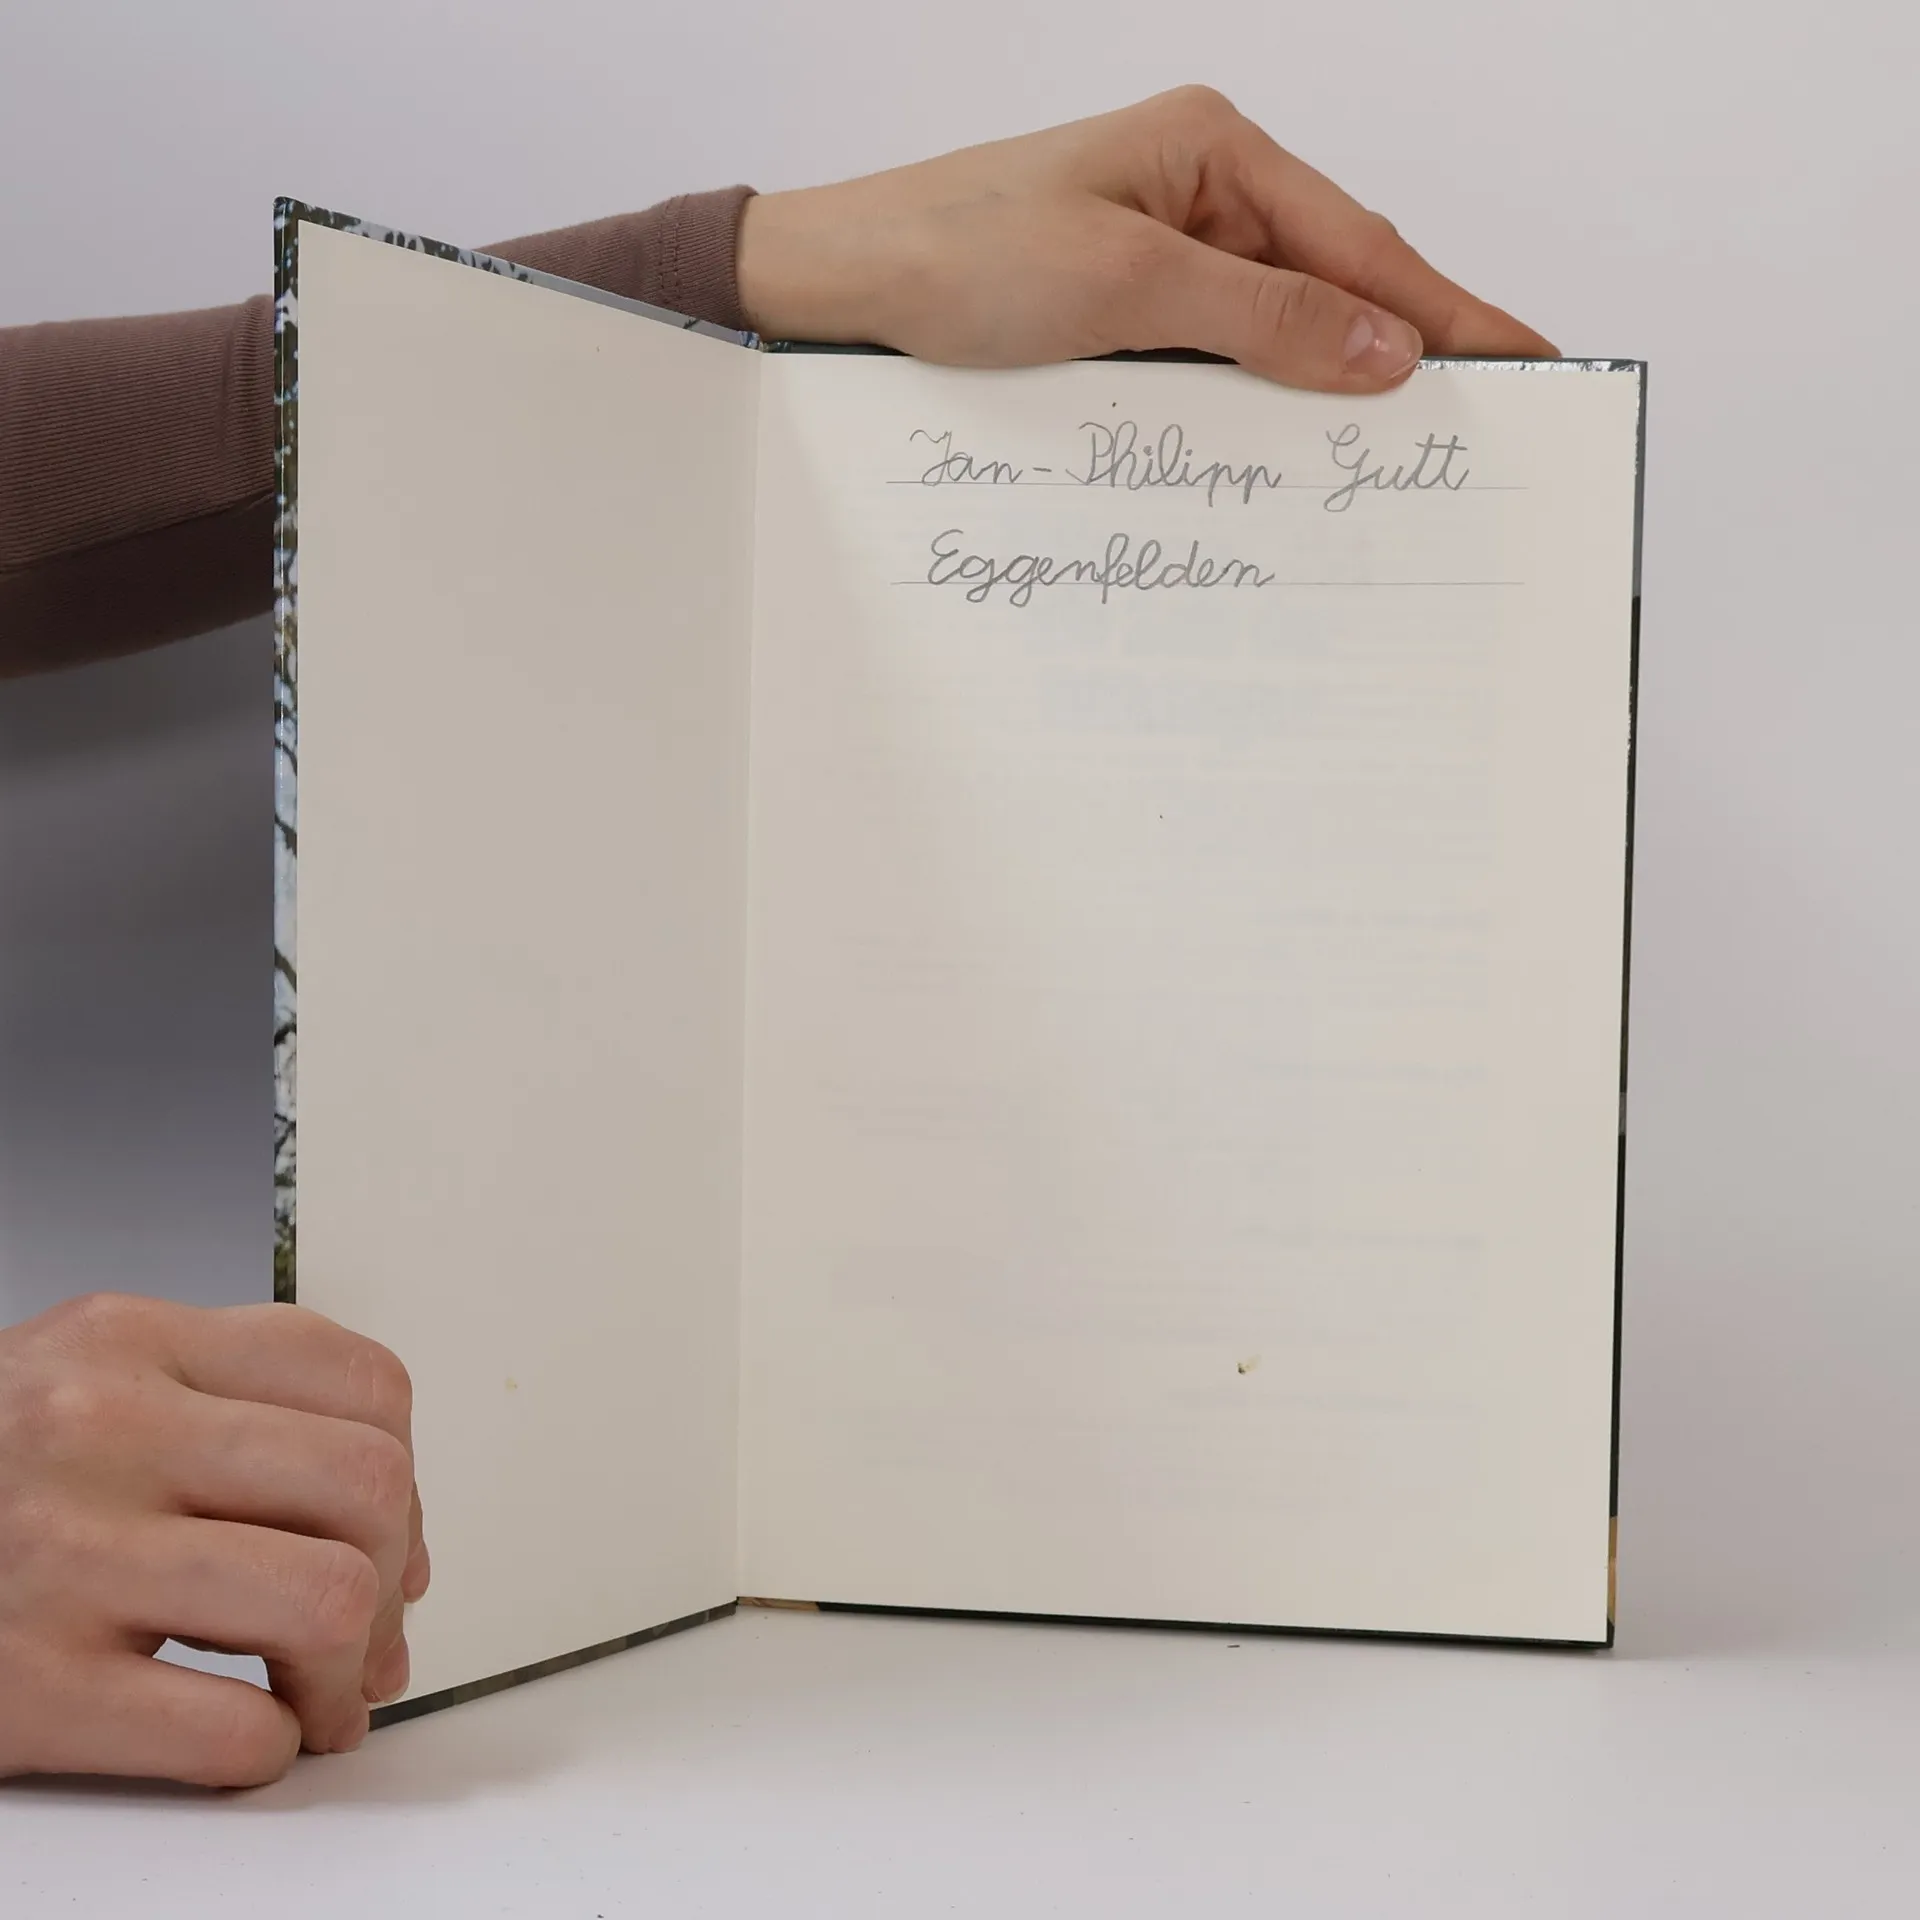 Jan-Philipp Gutt
Eggenfelden